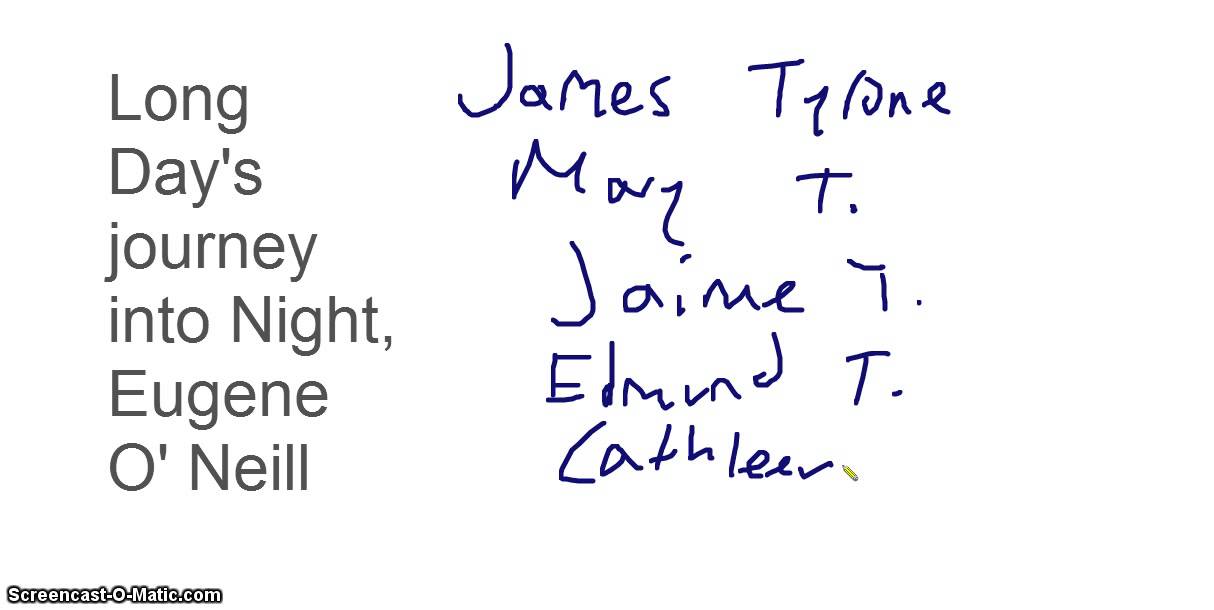 Long
Day's
journey
into Night,
Eugene
O' Neill
James Tyrone
Mary T.
Jaime T.
Edmund T.
Cathleen
Screencast-O-Matic.com